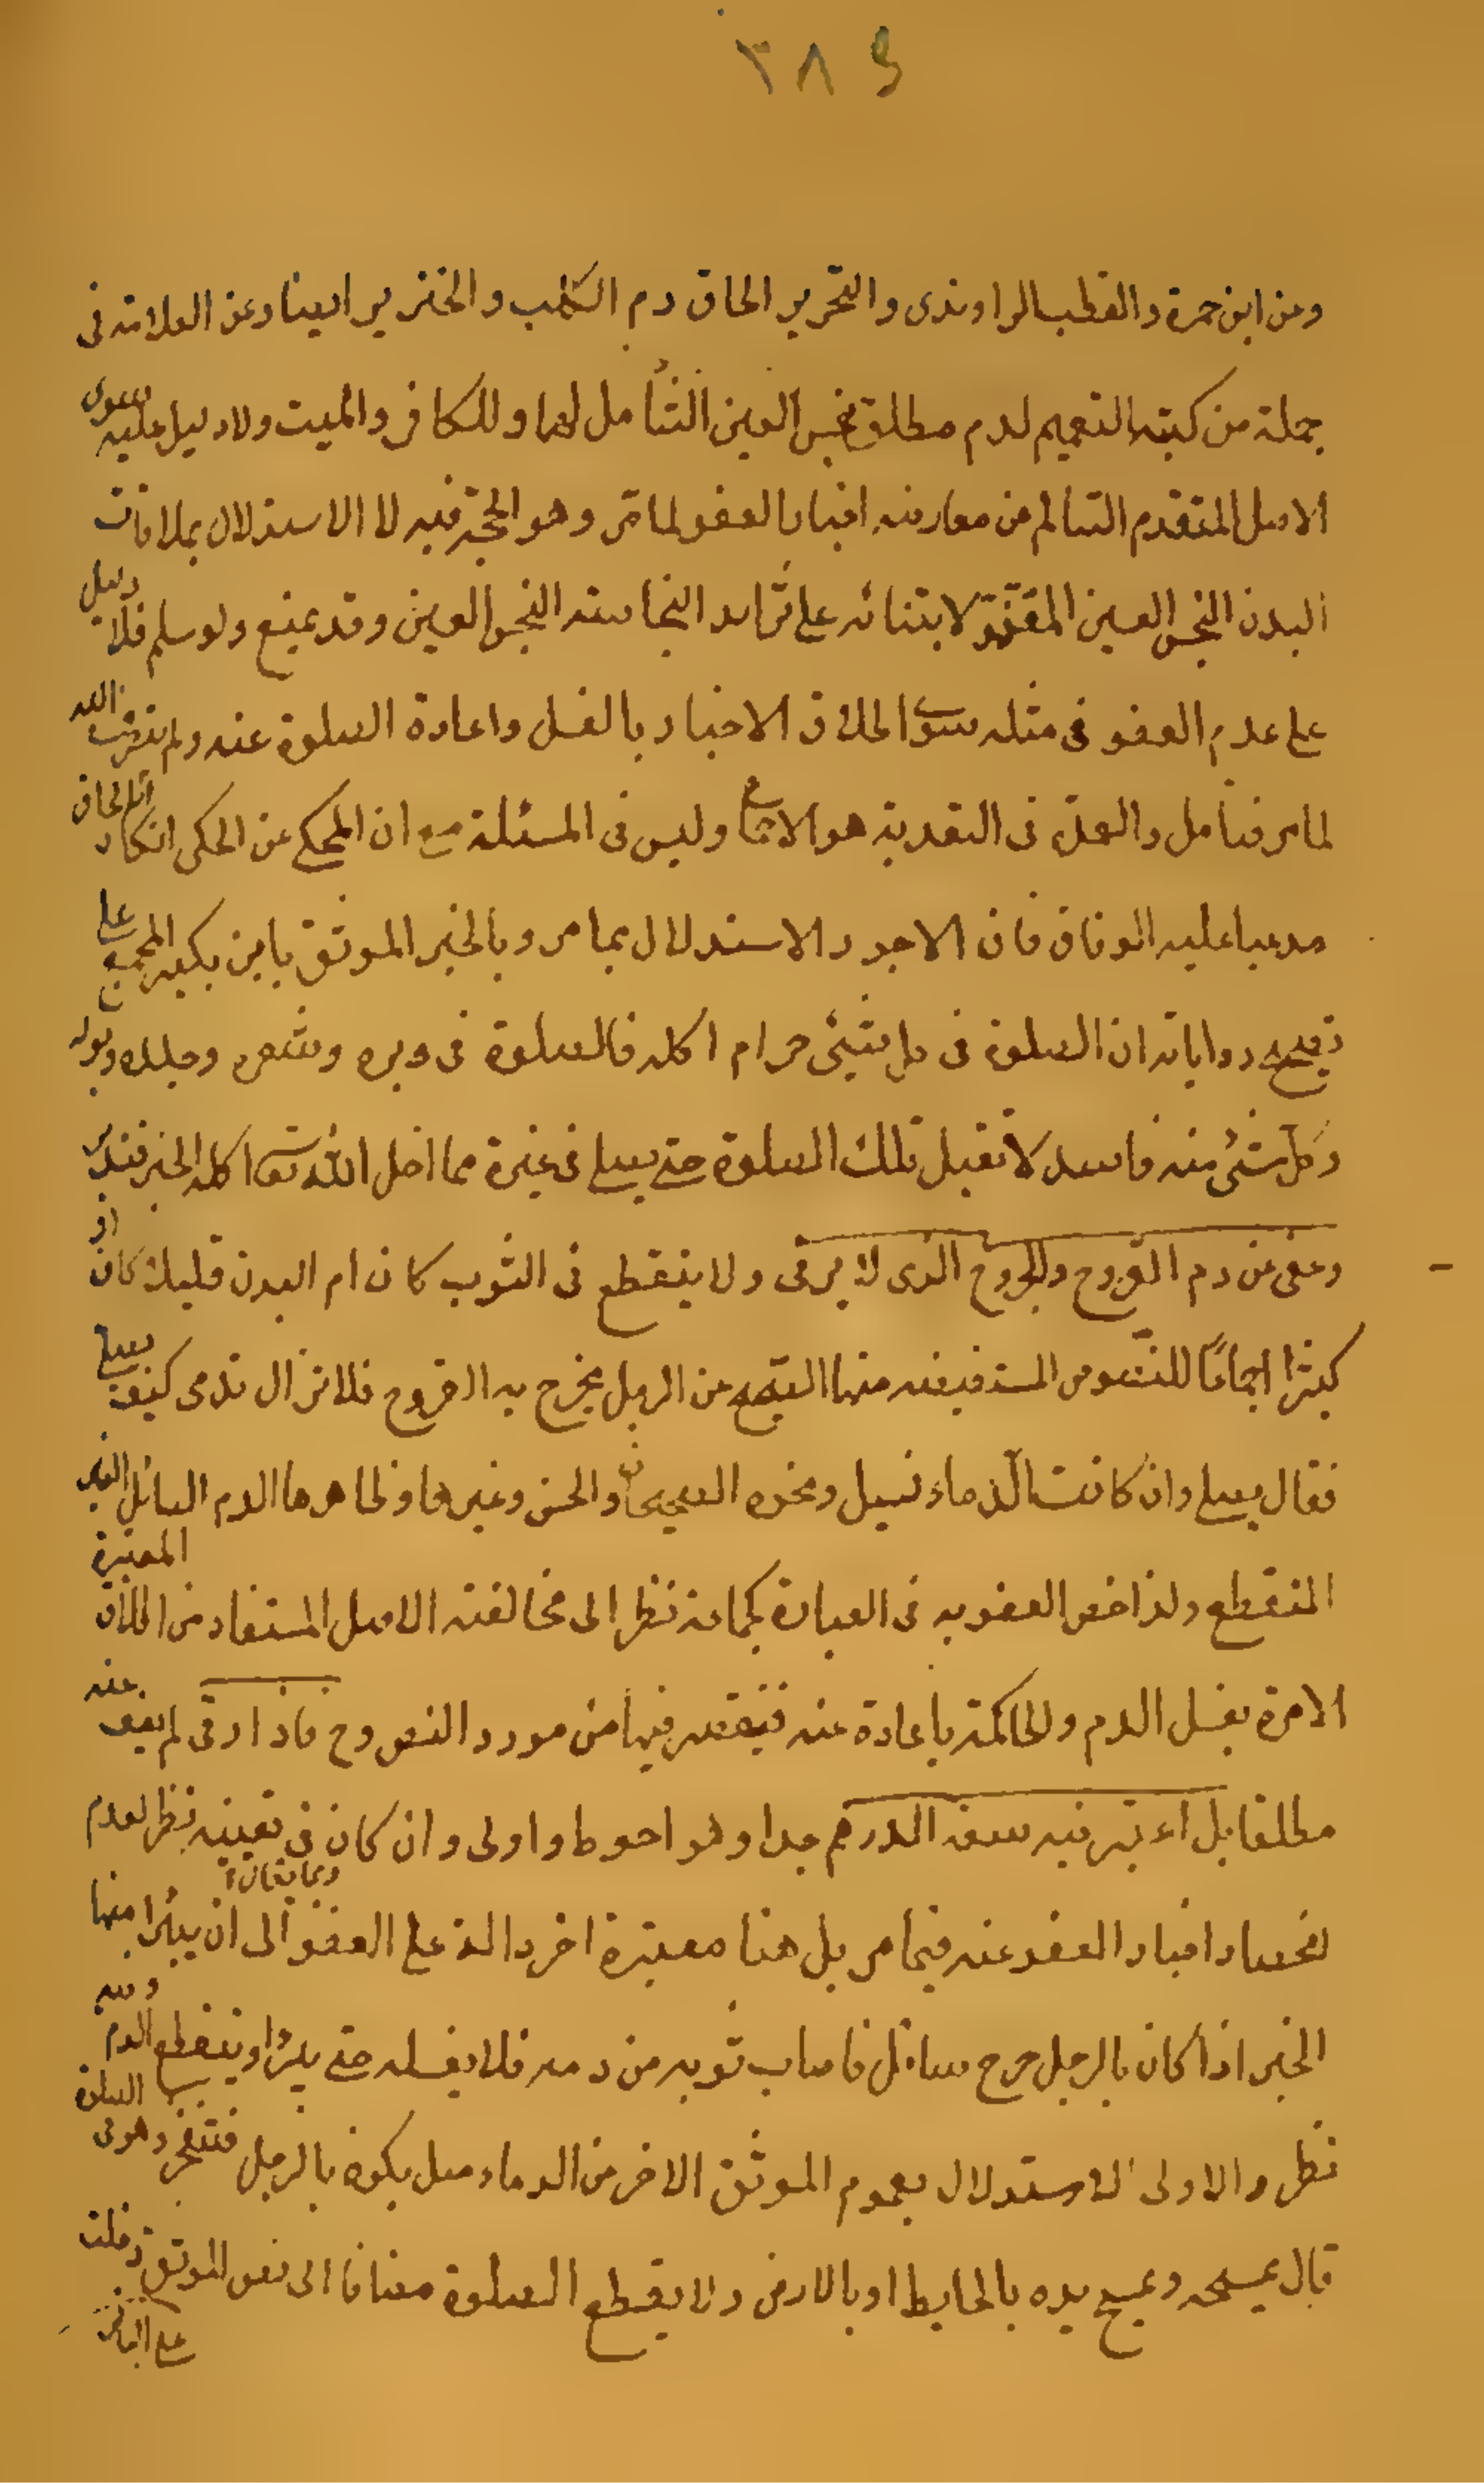 ٣٨٤
وعن ابن حمزة والقطب الراوندى والتحرير الحاق دم الكلب والخنزير ايضا وعن العلامة فى
جملة من كتبه التعميم لدم مطلق نجس العين الشامل لهما وللكافر والميت ولا دليل عليه سوى
الاصل المتقدم السالم من معارضة اخبار العفو لما مر وهو الحجة فيه لا الاستدلال بملاقات
البدن النجس العين المقتضية لابتنائه على تزايد النجاسة النجس العين وقد يمنع ولو سلم فلا دليل
على عدم العفو فى مثله سوى اطلاق الاخبار بالغسل واعادة الصلوة عنه ولم
لما مر فتأمل والعمدة فى التعدية هو الاجماع وليس فى المسئلة مع ان المحكى عن الحلى انكار الالحاق
مدعيا عليه الوفاق فان الاجود الاستدلال بما مر وبالخبر الموثق بابن بكير المجمع على
تصحيح رواياته ان الصلوة فى كل شيئ حرام اكله فالصلوة فى وبره وشعره وجلده وبوله
وكل شئ منه فاسد لا تقبل تلك الصلوة حتى يصلى فى غيره مما احل الله تعالى اكله الخبر فتدبر
وعفى عن دم القروح والجروح الذى لا يرقى ولا ينقطع فى الثوب كان ام البدن قليلا كان او
كثيرا اجماعًا للنصوص المستفيضة منها الصحيح عن الرجل يخرج به القروح فلا تزال تدمى كيف يصلى
فقال يصلى وان كانت الدماء تسيل ونحوه الصحيحان والحسن وغيرها وظاهرها الدم السائل الغير
المنقطع ولذا خص العفو به فى العبارة كجماعة نظرا الى مخالفته الاصل المستفاد من اطلاق المعتبرة
الامرة بغسل الدم والحاكمة باعادة عنه فيقتصر فيها من مورد النصوص فاذا رقى لم يعف عنه
مطلقا بل اعتبر فيه سعة الدرهم جدا وهو احوط واولى وان كان فى تعيينه نظر لعدم
انحصار اخبار العفو عنه فيما مر بل هنا معتبرة اخر دالة على العفو الى ان يبرأ منها
وبما يقال
الخبر اذا كان بالرجل جرح سائل فاصاب ثوبه من دمه فلا يغسله حتى يبرأ وينقطع الدم وفيه
نظر والاولى الاستدلال بعموم الموثق الاخر من الدماء مل يكون بالرجل فتنفجر وهو فى الصلوة
قال يمسحه ويمسح يده بالحايط او بالارض ولا يقطع الصلوة مضافا الى نص الموثق دخلت
على الباقر